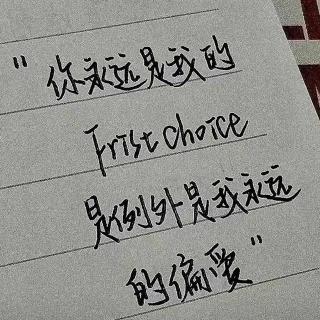 "你永远是我的
Frist choice
是例外是我永远
的偏爱"